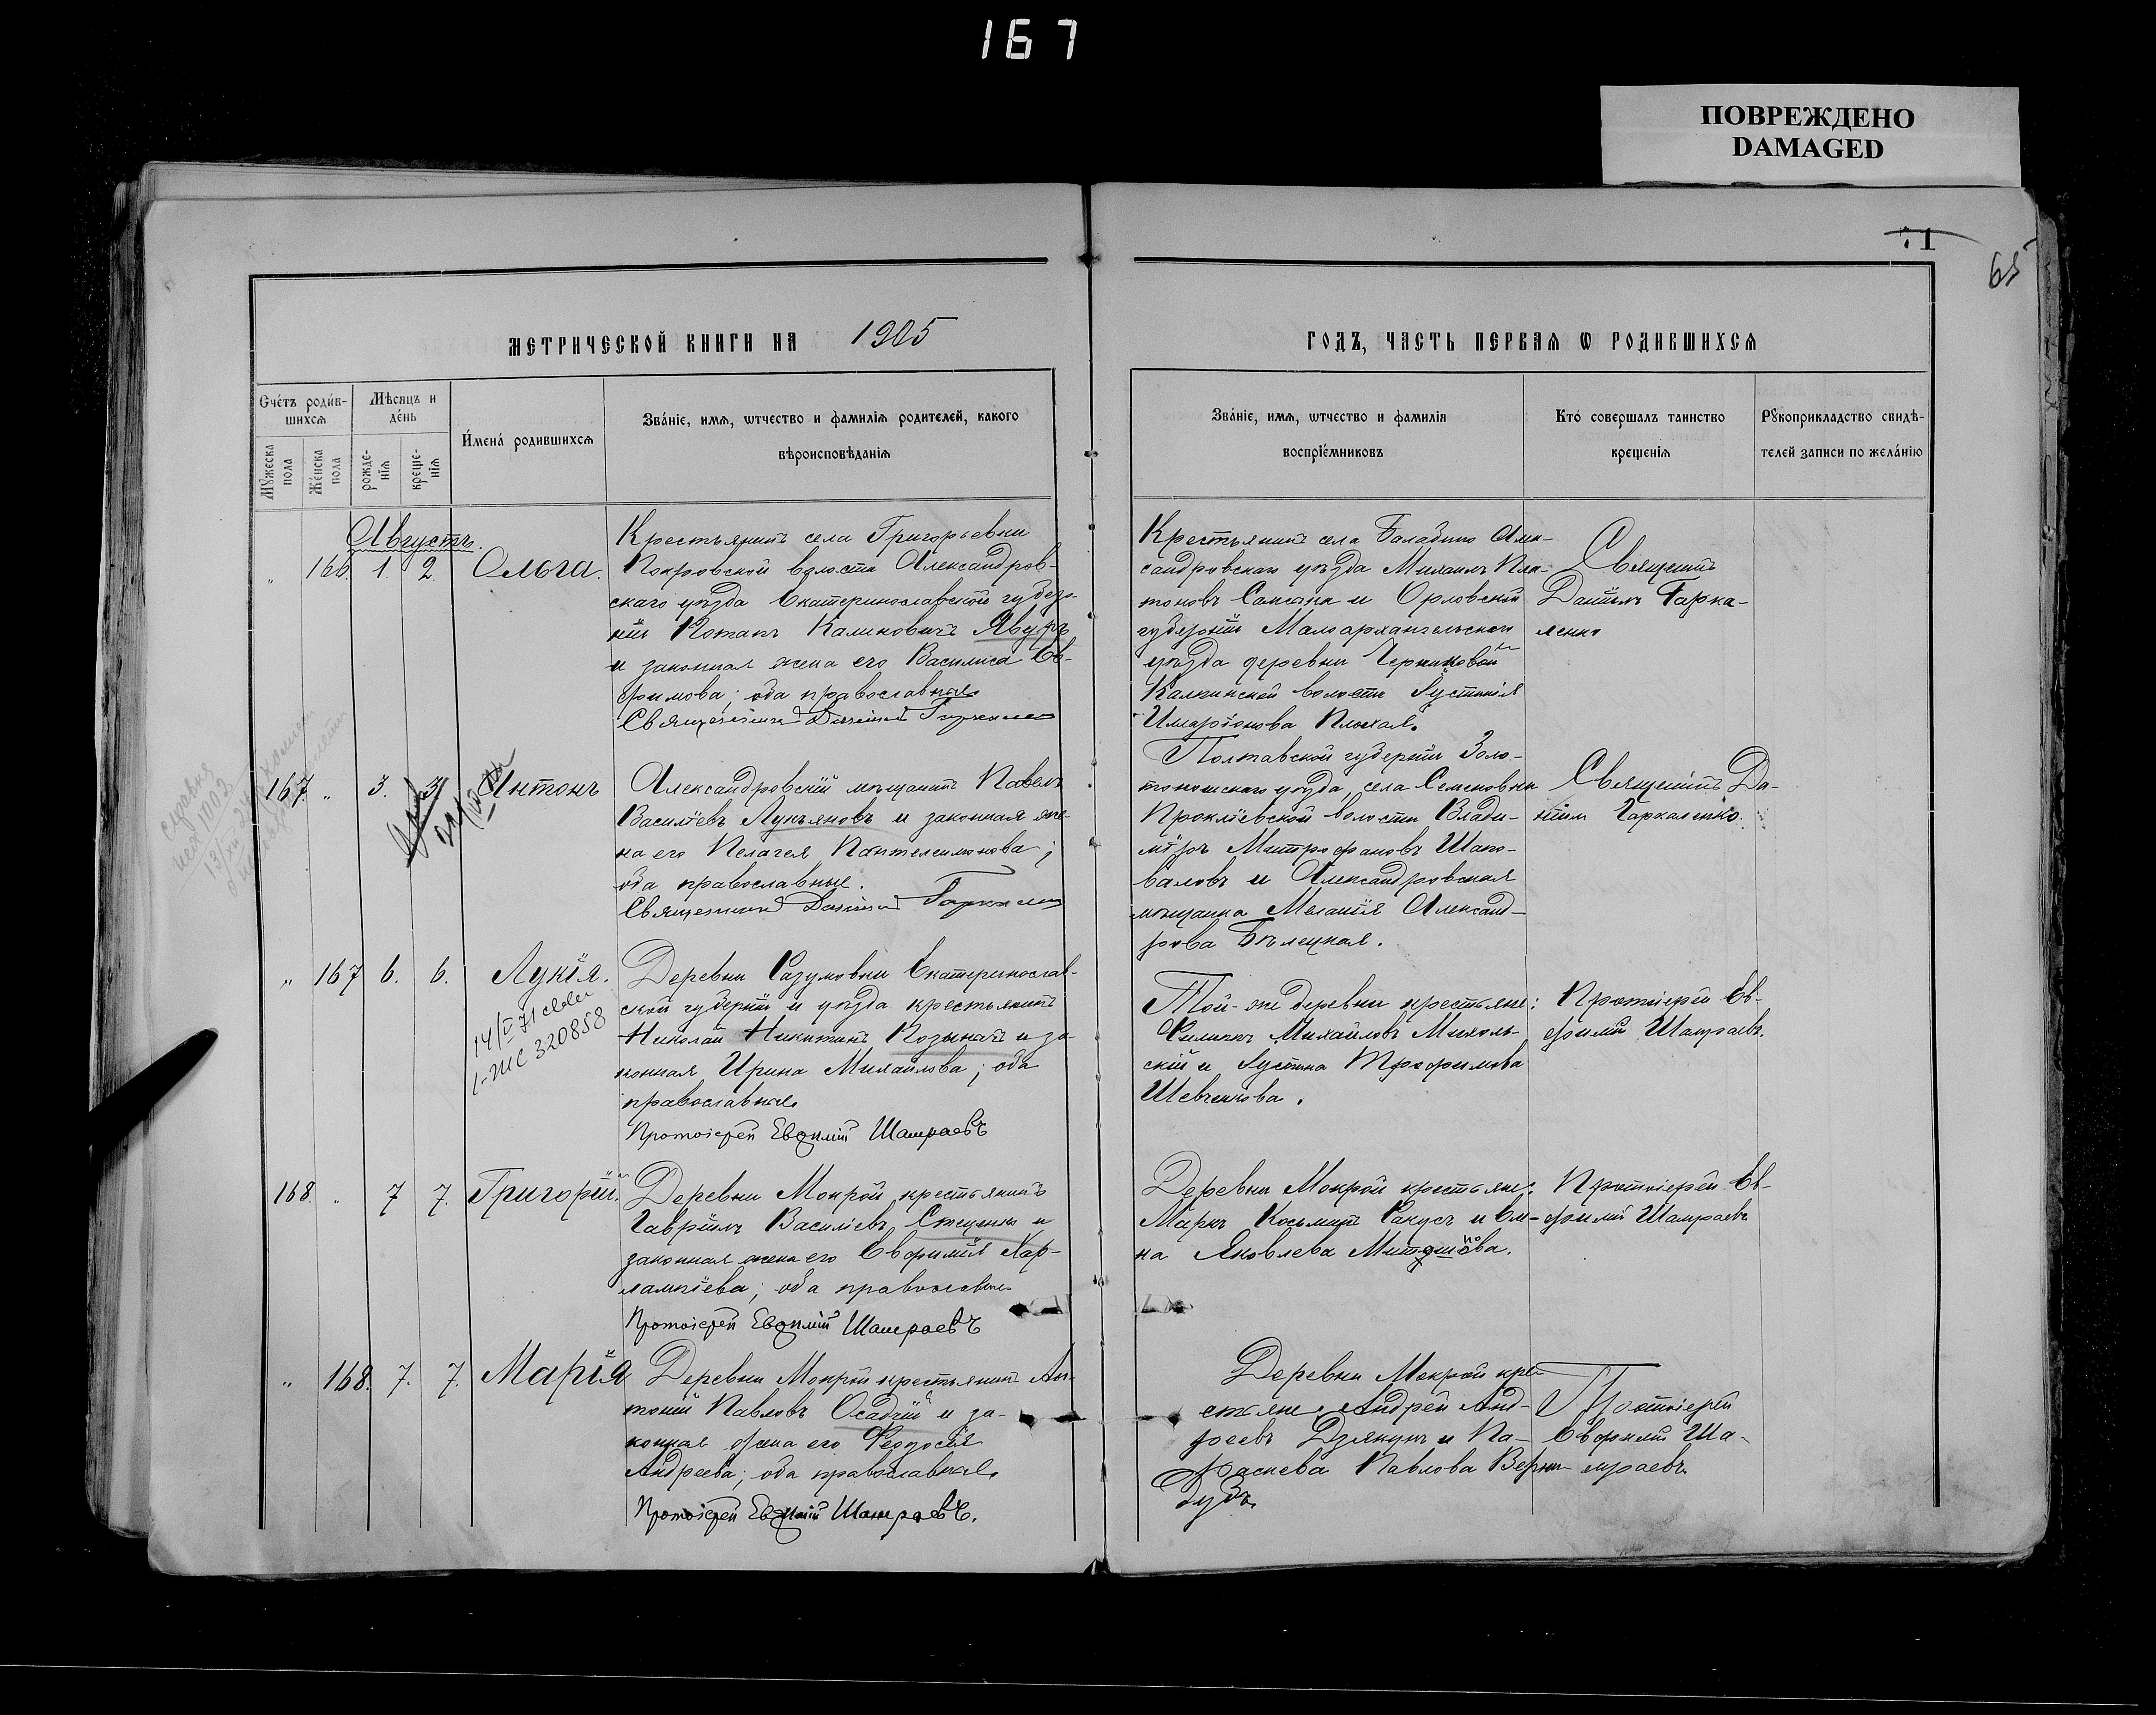 167
ПОВРЕЖДЕНО
DAMAGED
71
65
МЕТРИЧЕСКОЙ КНИГИ НА 1905
ГОДЪ, ЧАСТЬ ПЕРВАѦ Ѡ РОДИВШИХСѦ
Счетъ родив-
шихсѧ
Мѣсяцъ и
день
Имена родившихсѧ
Званіе, имѧ, ѡтчество и фамиліѧ родителей, какого
вѣроисповѣданіѧ
Мужеска
пола
Женска
пола
рожде-
ніѧ
креще-
ніѧ
Званіе, имѧ, ѡтчество и фамиліѧ
воспріемниковъ
Кто совершалъ таинство
крещеніѧ
Рукоприкладство свидѣ-
телей записи по желанію
Августъ.
" 166. 1. 2. Ольга.
Крестьянинъ села Григорьевки
Покровской волости Александров-
скаго уѣзда Екатеринославской губер-
ніи Потапъ Калиновичъ Явуръ
и законная жена его Василиса Ев-
фимова; оба православные
Священникъ Даніилъ
Крестьянинъ села Баладино Алек-
сандровскаго уѣзда Михаилъ Пла-
тоновъ и Орловской
губерніи Малоархангельскаго
уѣзда деревни
волости Іустинія
Плохая.
Священникъ
Даніилъ Гарка-
ленко
167. " 3. 3. Антонъ
Александровскій мѣщанинъ Павелъ
Василіевъ Лукьяновъ и законная же-
на его Пелагея Пантелеимонова;
оба православные.
Священникъ Даніилъ
Полтавской губерніи Золо-
тоношскаго уѣзда, села Семеновки
волости Влади-
міръ Митрофановъ Шапо-
валовъ и Александровская
мѣщанка Меланія Александ-
рова Бѣлецкая.
Священникъ Да-
ніилъ Гаркаленко.
" 167 6. 6. Лукія.
14/IV 71
320858
Деревни Разумовки Екатеринослав-
ской губерніи и уѣзда крестьянинъ
Николай Никитинъ и за-
конная Ирина Михайлова; оба
православные
Протоіерей Евфимій Шамраевъ
Той-же деревни крестьяне:
Филиппъ Михайловъ Михаль-
скій и Іустина Трофимова
Шевченкова.
Протоіерей Ев-
фимій Шамраевъ.
168. " 7 7. Григорій.
Деревни Мокрой крестьянинъ
Гавріилъ Василіевъ Стеценко и
законная жена его Евфимія Хар-
лампіева; оба православные
Протоіерей Евфимій Шамраевъ
Деревни Мокрой крестьяне:
Маркъ Косьминъ Ракусъ и Еле-
на Яковлева
Протоіерей Ев-
фимій Шамраевъ
" 168. 7. 7. Марія
Деревни Мокрой крестьянинъ Ан-
тоній Павловъ Осадчій и за-
конная жена его Феодосія
Андреева; оба православные
Протоіерей Евфимій Шамраевъ.
Деревни Мокрой кре-
стьяне Андрей Анд-
реевъ и Па-
раскева Павлова Верни-
дубъ.
Протоіерей
Евфимій Ша-
мраевъ